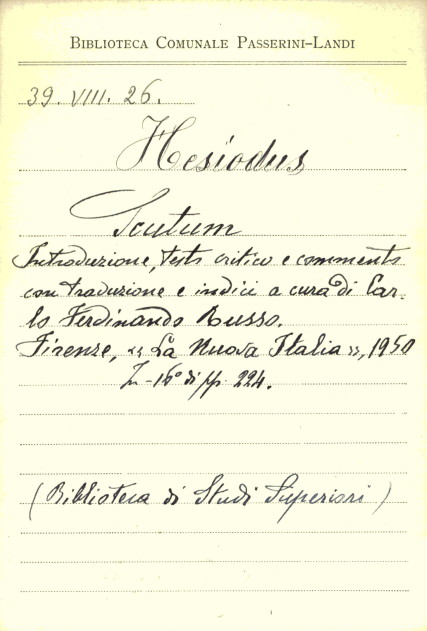 BIBLIOTECA COMUNALE PASSERINI-LANDI
39. VIII. 26.
Hesiodus
Scutum
Introduzione, testo critico e commento
con traduzione e indici a cura di Car-
lo Ferdinando Russo.
Firenze, « La Nuova Italia », 1950
In-16° di pp. 224.
(Biblioteca di Studi Superiori)